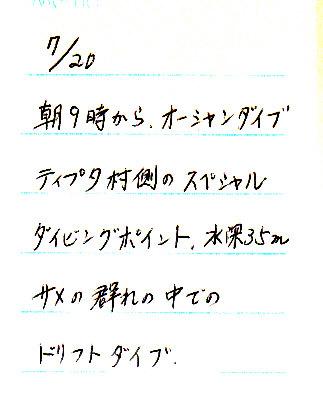 7/20
朝9時から、オーシャンダイブ
ティプタ村側のスペシャル
ダイビングポイント、水深35m
サメの群れの中での
ドリフトダイブ.